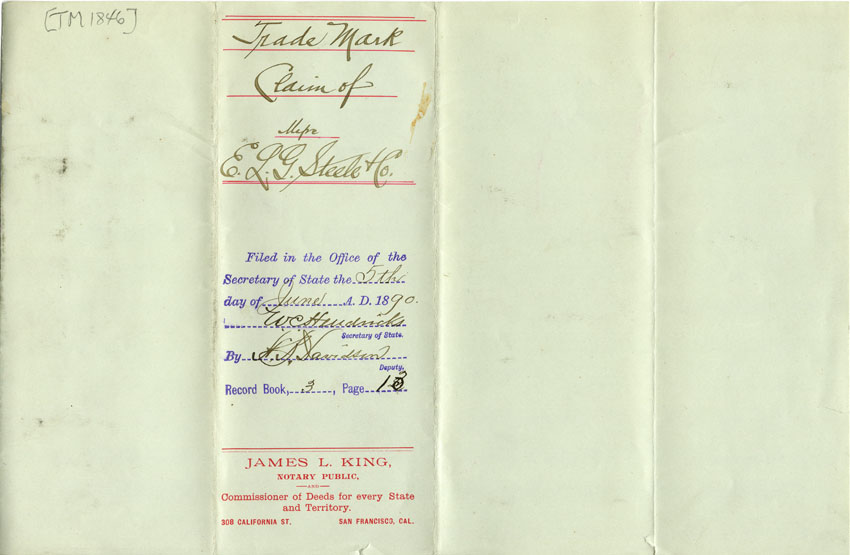 [TM 1846]
Trade Mark
Claim of
Messrs
E. L. G. Steele & Co.
Filed in the Office of the
Secretary of State the 5th
day of June A. D. 1890.
W C Hendricks
Secretary of State.
By Davidson
Deputy.
Record Book, 3, Page 13
JAMES L. KING,
NOTARY PUBLIC,
AND
Commissioner of Deeds for every State
and Territory.
308 CALIFORNIA ST. SAN FRANCISCO, CAL.